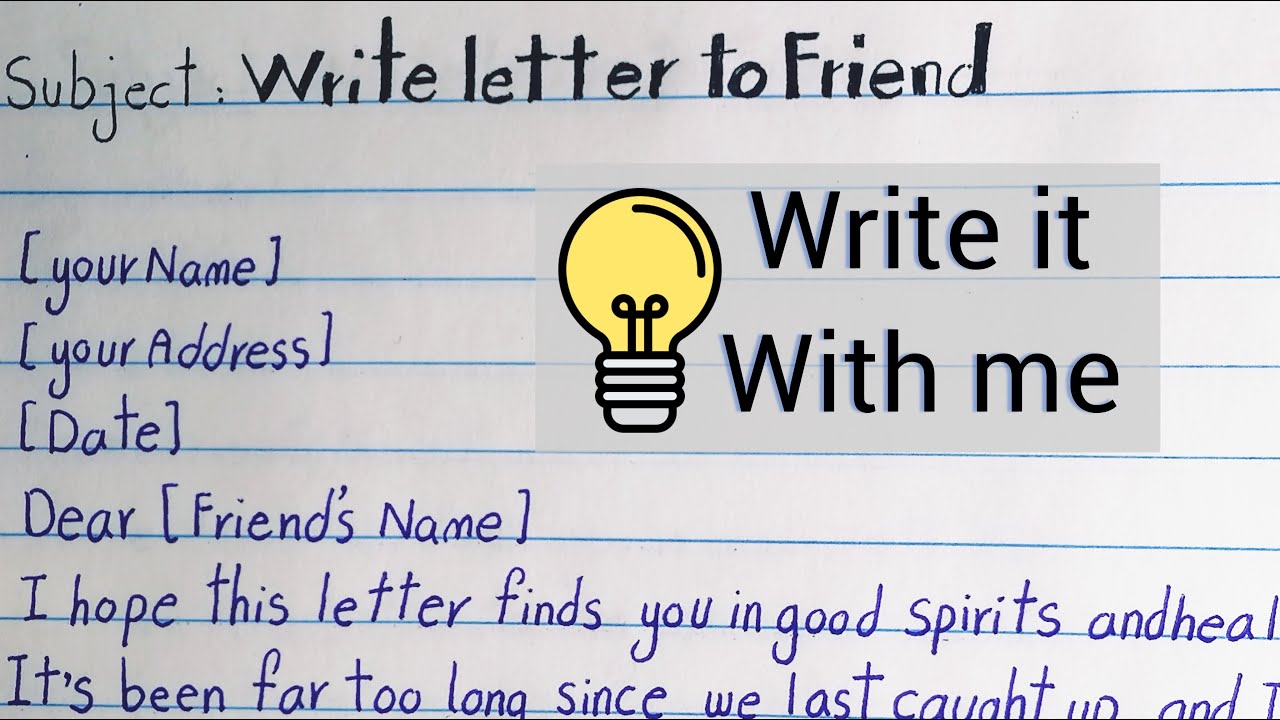 Subject: Write letter to Friend
Write it
With me
[your Name]
[your Address]
[Date]
Dear [Friend's Name]
I hope this letter finds you in good spirits and
It's been far too long since we last caught up and I